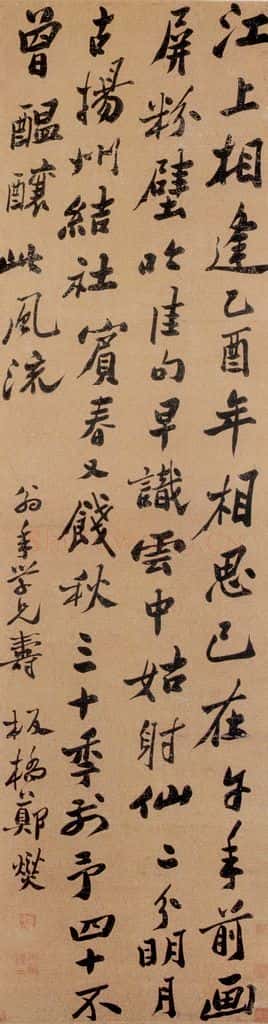 江上相逢己酉年相思已在午年前画
屏粉壁吟佳句早識雲中姑射仙二分明月
古揚州結社賓春又餞秋三十季前予四十不
曾醖釀此風流
翁年学兄壽 板橋鄭燮